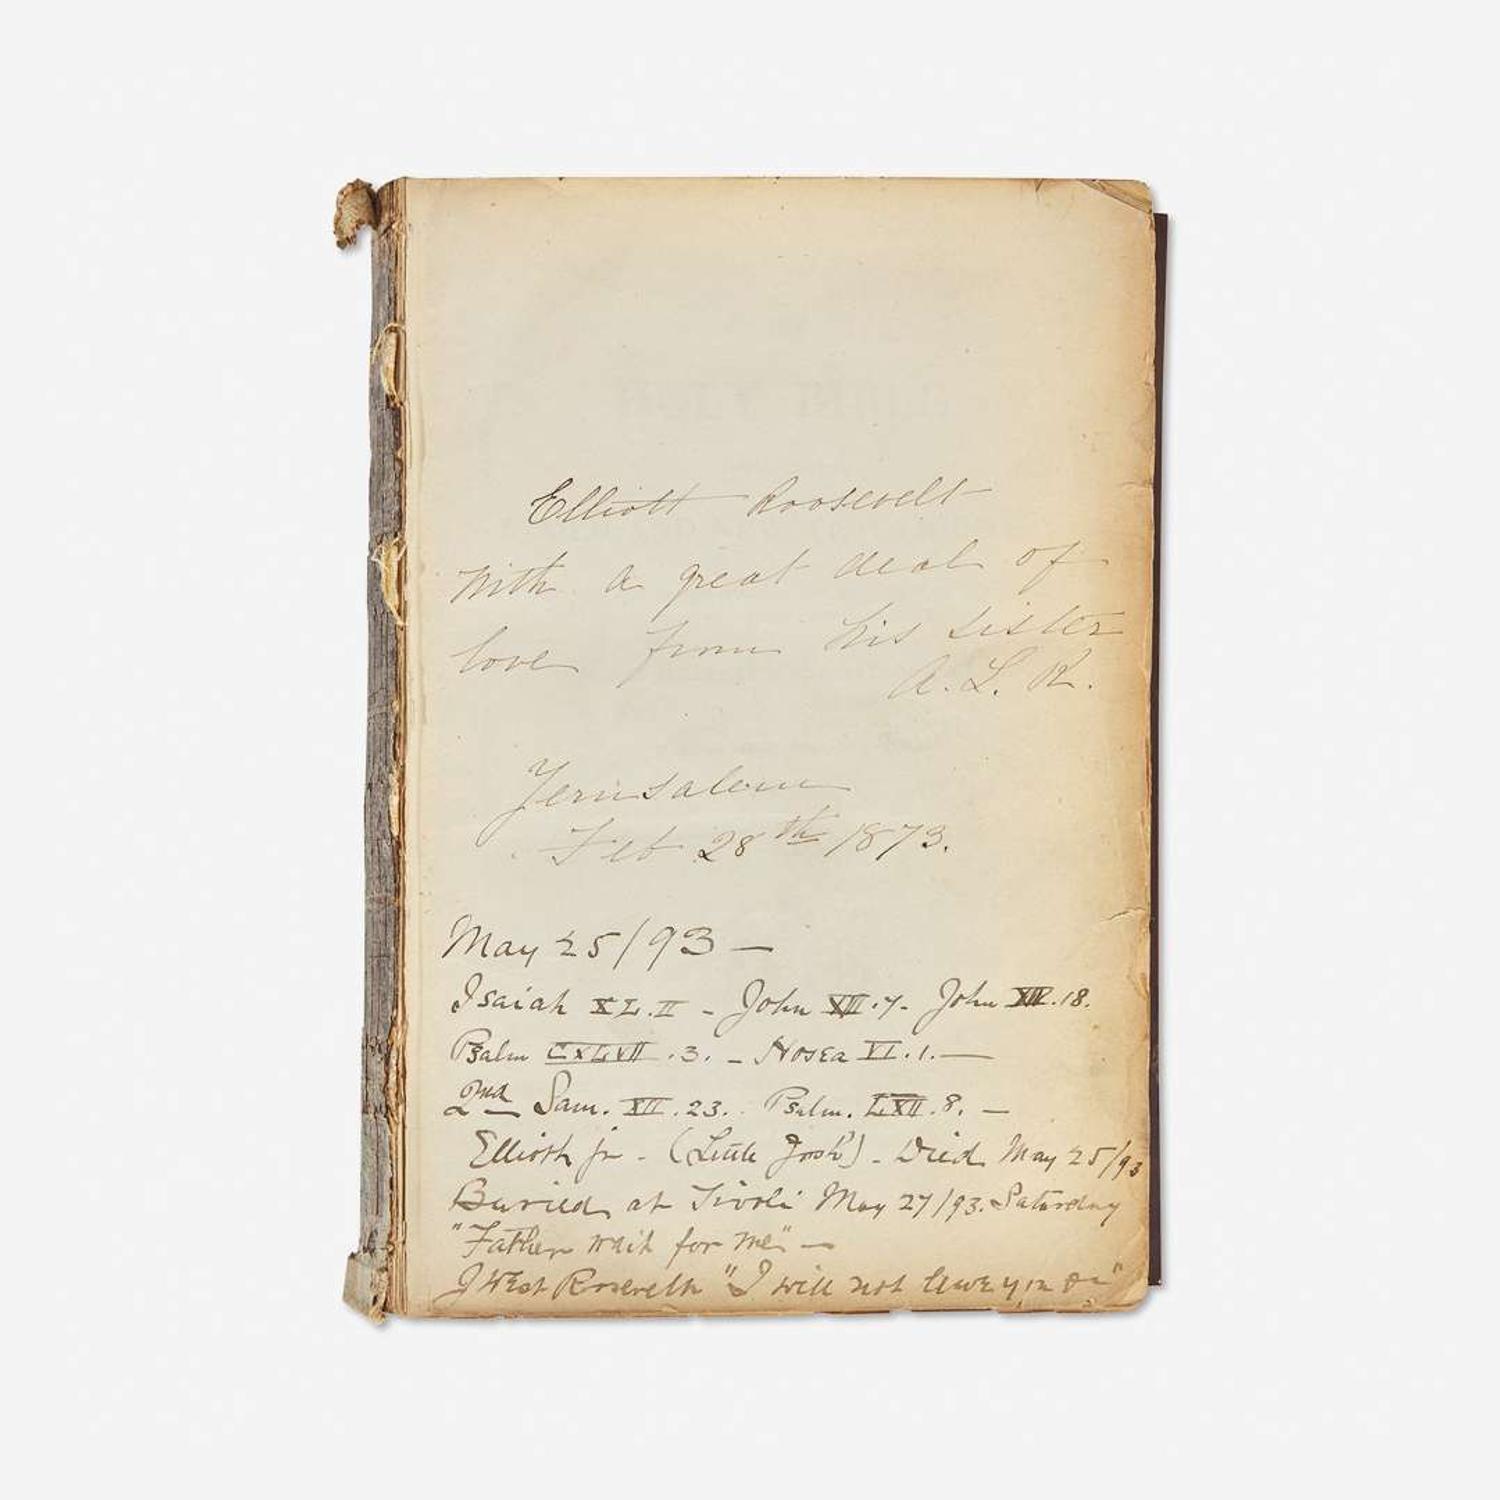 Elliott Roosevelt
with a great deal of
love from his sister
A. L. R.
Jerusalem
Feb 28th 1873.
May 25/93 —
Isaiah XL.II - John XIII.7 - John XIV.18.
Psalm CXLVII.3. - Hosea VI.1. —
2nd Sam. XII.23. Psalm. LXII.8. —
Elliott jr - (Little Josh) - Died May 25/93
Buried at Tivoli May 27/93. Saturday
"Father wait for me" —
J West Roosevelt "I will not leave you